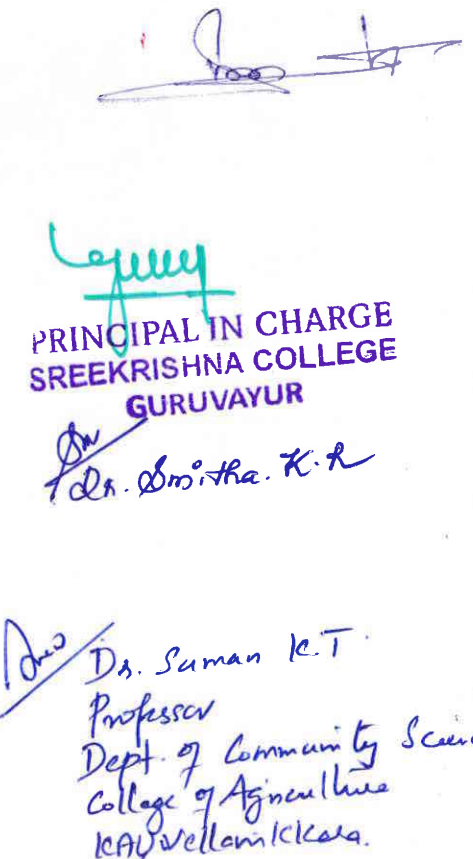 PRINCIPAL IN CHARGE
SREEKRISHNA COLLEGE
GURUVAYUR
Dr. Smitha. K. R
Dr. Suman K.T.
Professor
Dept. of Community Scien
College of Agriculture
KAU Vellanikkara.